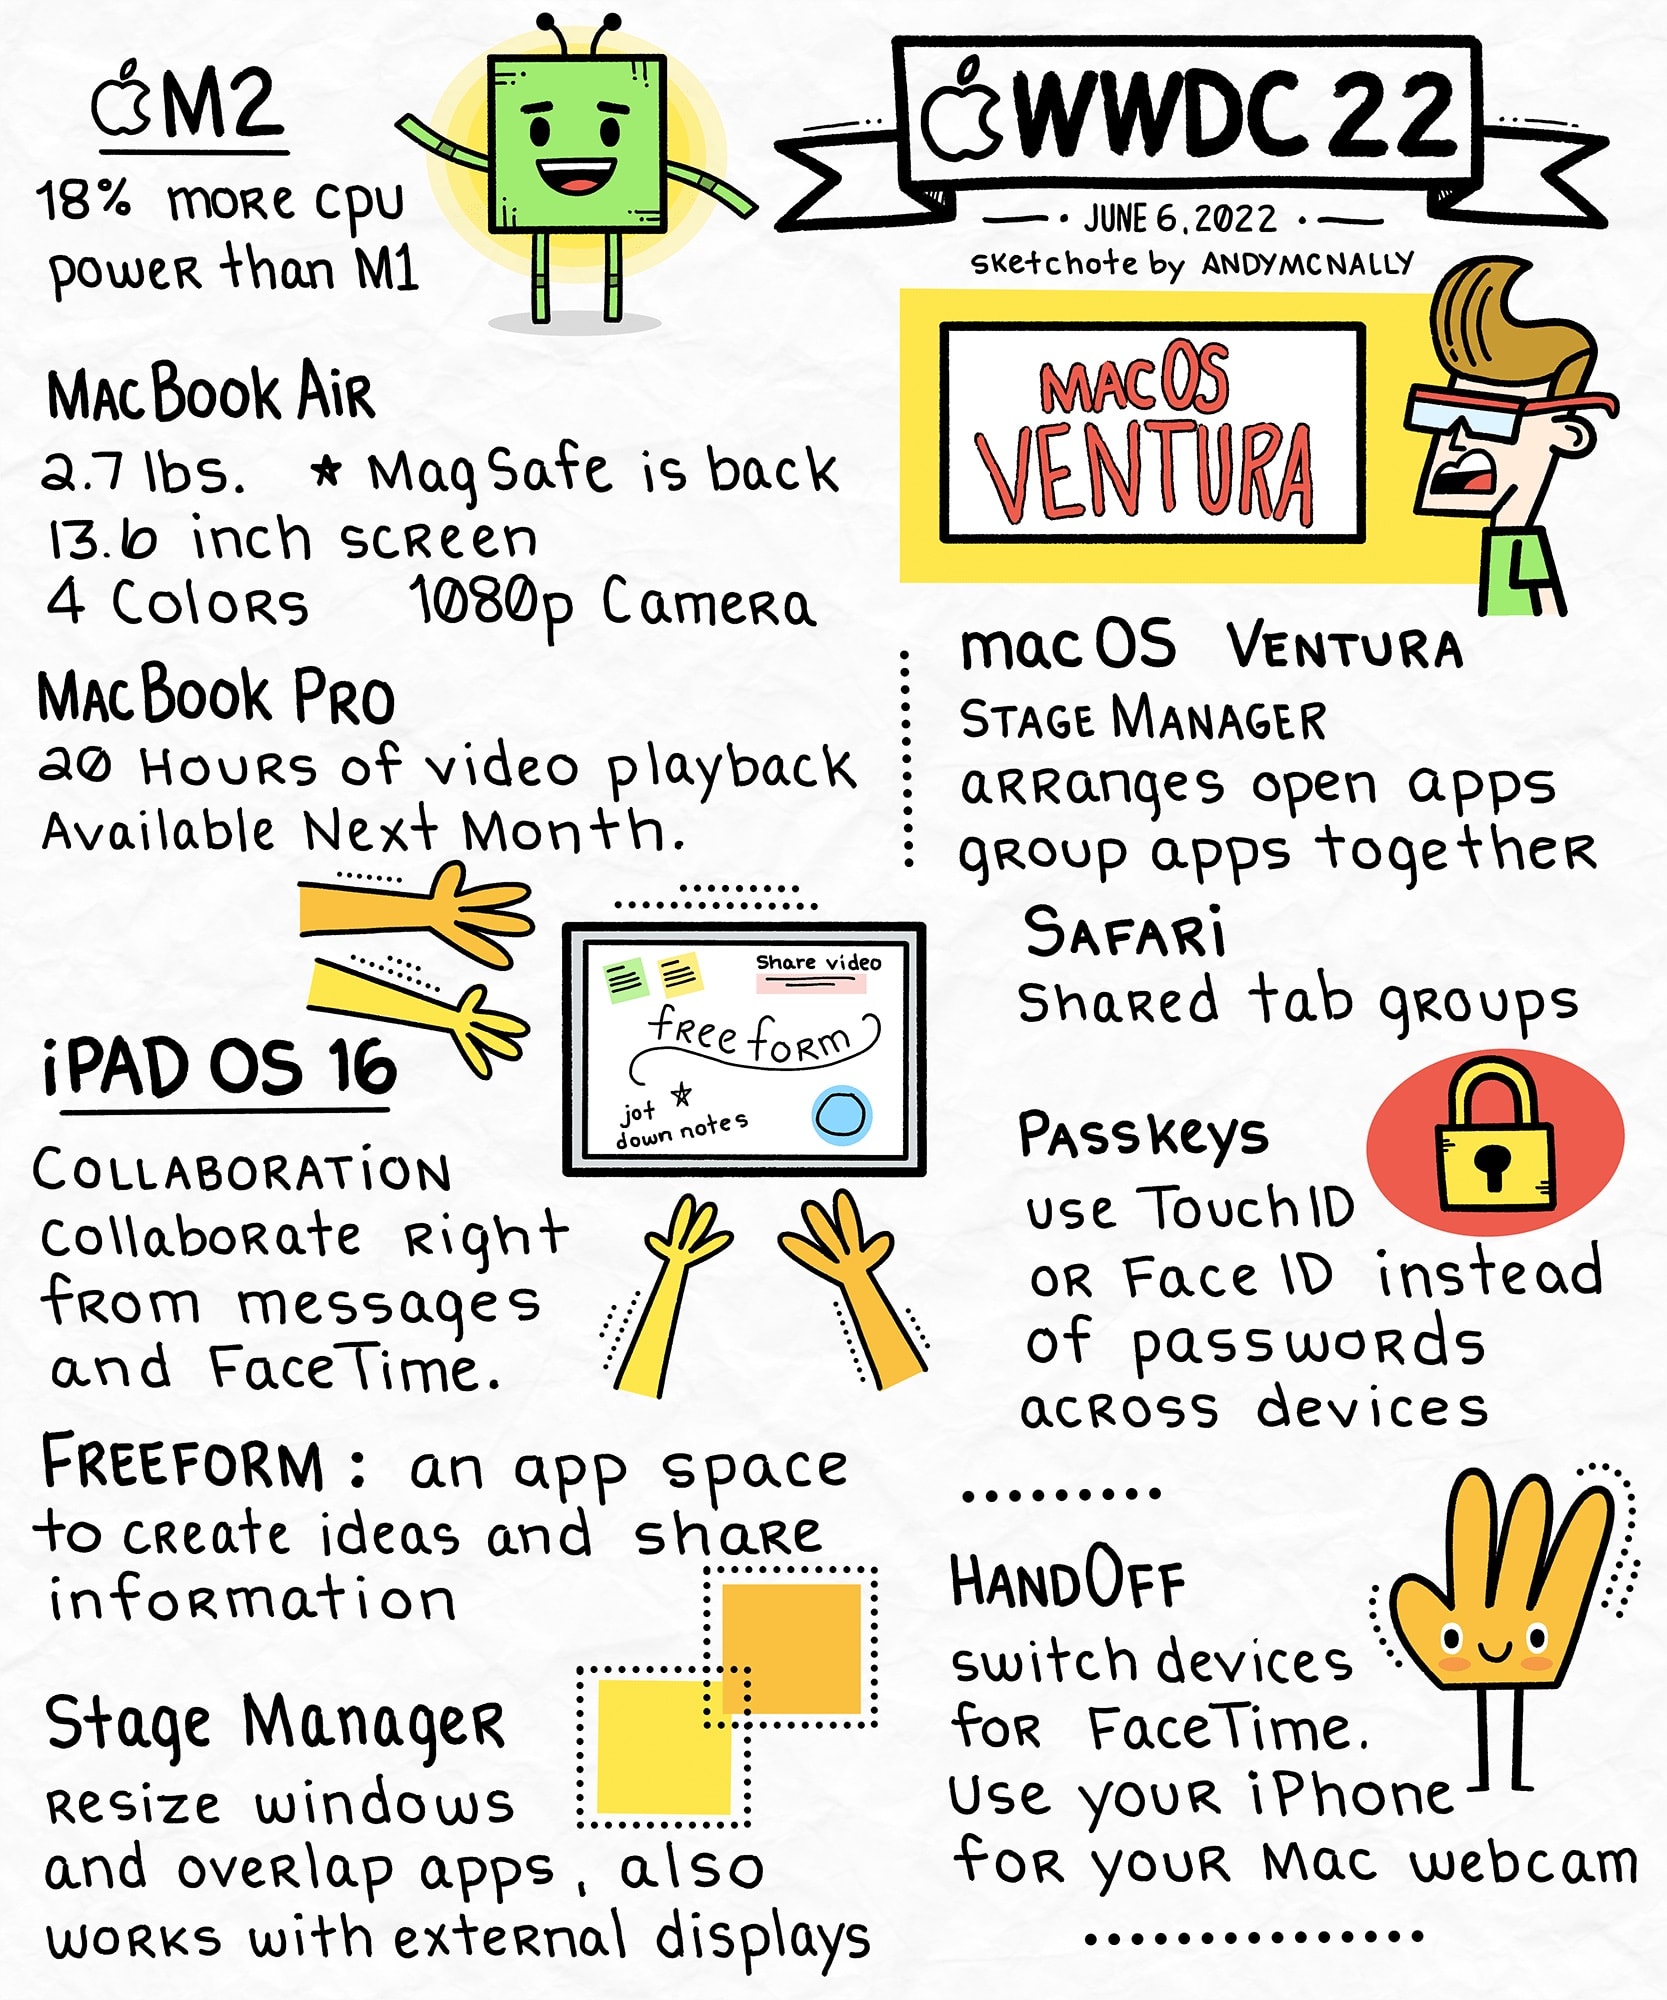 M2
18% more cpu
power than M1
MacBook Air
2.7 lbs. ★ MagSafe is back
13.6 inch screen
4 Colors 1080p Camera
MacBook Pro
20 Hours of video playback
Available Next Month.
iPAD OS 16
COLLABORATiON
Collaborate Right
from messages
and FaceTime.
share video
freeform
jot
down notes
FREEFORM : an app space
to create ideas and share
information
Stage Manager
Resize windows
and overlap apps, also
works with external displays
WWDC 22
JUNE 6, 2022
sketchote by ANDYMCNALLY
MACOS
VENTURA
macOS VENTURA
STAGE MANAGER
arranges open apps
group apps together
SAFARi
Shared tab groups
Passkeys
use TouchID
or Face ID instead
of passwords
across devices
HANDOFF
switch devices
for FaceTime.
Use your iPhone
for your Mac webcam